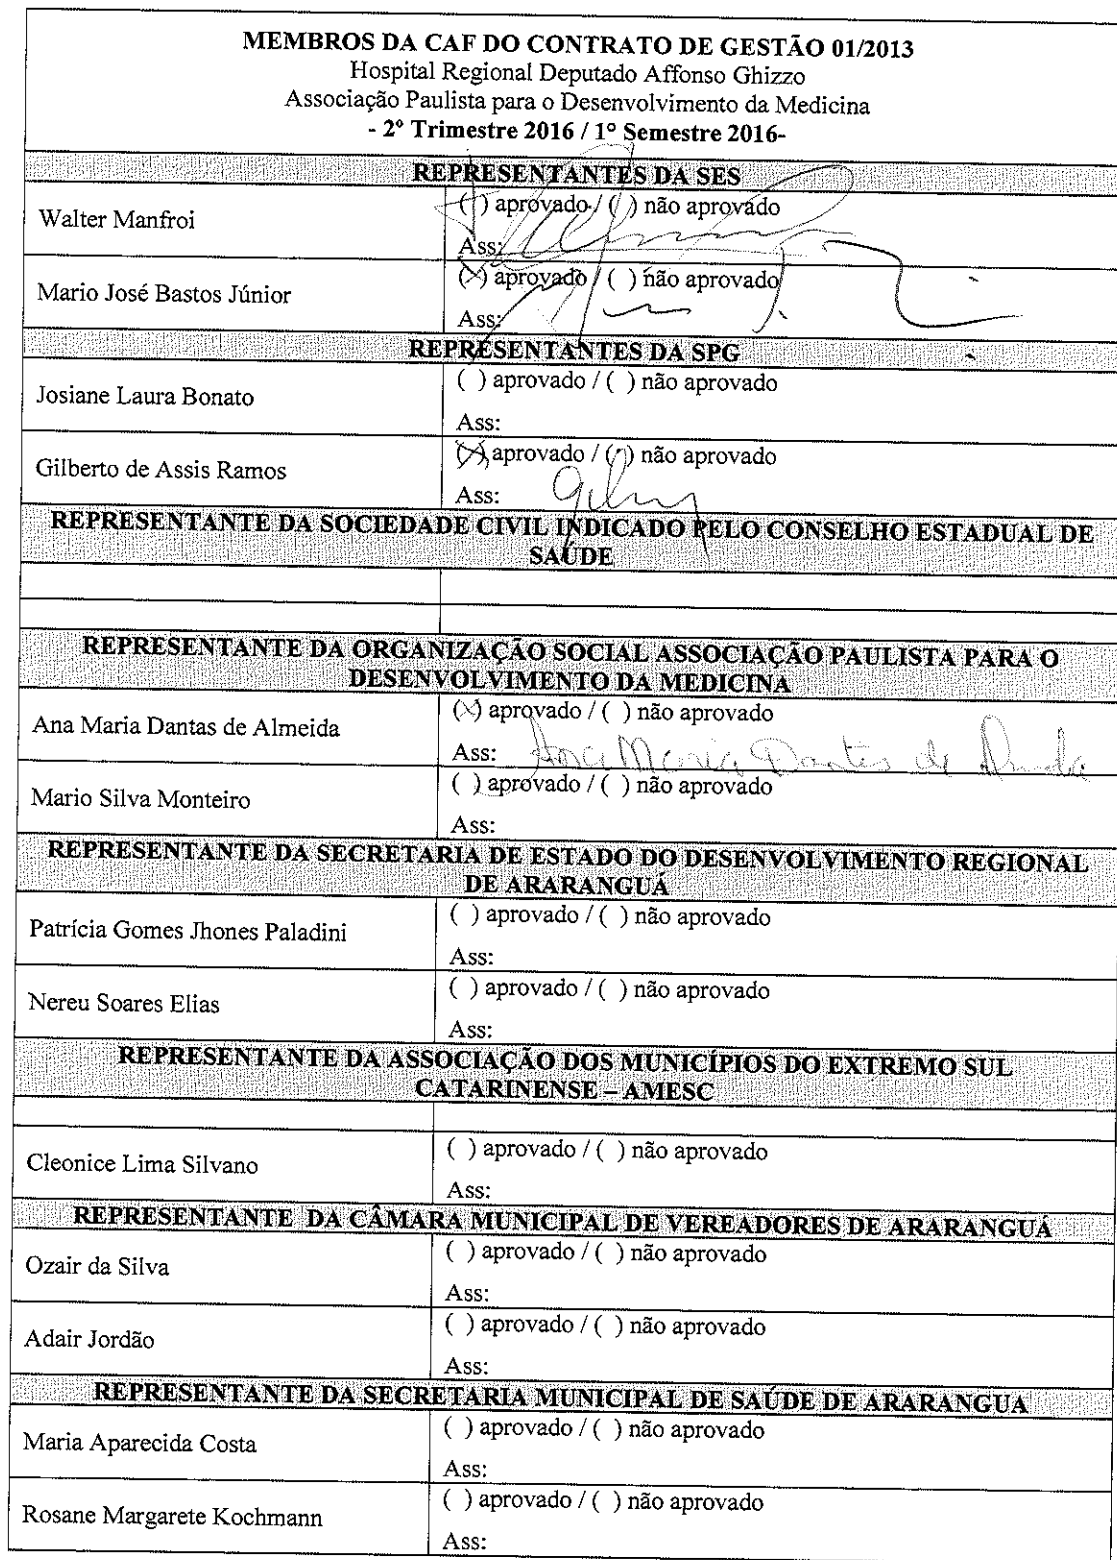 MEMBROS DA CAF DO CONTRATO DE GESTÃO 01/2013
Hospital Regional Deputado Affonso Ghizzo
Associação Paulista para o Desenvolvimento da Medicina
- 2º Trimestre 2016 / 1º Semestre 2016-
REPRESENTANTES DA SES
Walter Manfroi
( ) aprovado / ( ) não aprovado
Ass:
Mario José Bastos Júnior
(X) aprovado / ( ) não aprovado
Ass:
REPRESENTANTES DA SPG
Josiane Laura Bonato
( ) aprovado / ( ) não aprovado
Ass:
Gilberto de Assis Ramos
(X) aprovado / ( ) não aprovado
Ass:
REPRESENTANTE DA SOCIEDADE CIVIL INDICADO PELO CONSELHO ESTADUAL DE
SAÚDE
REPRESENTANTE DA ORGANIZAÇÃO SOCIAL ASSOCIAÇÃO PAULISTA PARA O
DESENVOLVIMENTO DA MEDICINA
Ana Maria Dantas de Almeida
(X) aprovado / ( ) não aprovado
Ass: Ana Maria Dantas de Almeida
Mario Silva Monteiro
( ) aprovado / ( ) não aprovado
Ass:
REPRESENTANTE DA SECRETARIA DE ESTADO DO DESENVOLVIMENTO REGIONAL
DE ARARANGUÁ
Patrícia Gomes Jhones Paladini
( ) aprovado / ( ) não aprovado
Ass:
Nereu Soares Elias
( ) aprovado / ( ) não aprovado
Ass:
REPRESENTANTE DA ASSOCIAÇÃO DOS MUNICÍPIOS DO EXTREMO SUL
CATARINENSE – AMESC
Cleonice Lima Silvano
( ) aprovado / ( ) não aprovado
Ass:
REPRESENTANTE DA CÂMARA MUNICIPAL DE VEREADORES DE ARARANGUÁ
Ozair da Silva
( ) aprovado / ( ) não aprovado
Ass:
Adair Jordão
( ) aprovado / ( ) não aprovado
Ass:
REPRESENTANTE DA SECRETARIA MUNICIPAL DE SAÚDE DE ARARANGUA
Maria Aparecida Costa
( ) aprovado / ( ) não aprovado
Ass:
Rosane Margarete Kochmann
( ) aprovado / ( ) não aprovado
Ass: